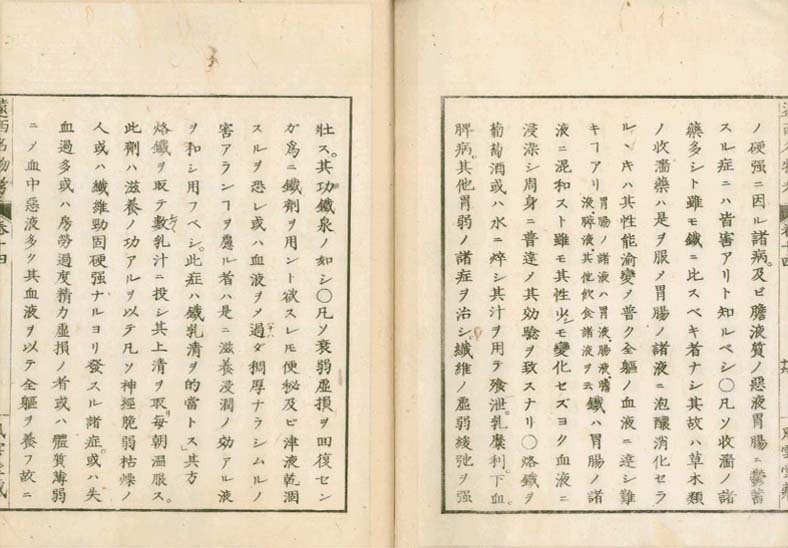 ノ硬强ニ因ル諸病。及ビ膽液質ノ惡液胃腸ニ鬱蓄
スル症ニハ皆害アリト知ルベシ〇凡ソ收濇ノ諸
藥多シト雖モ鐵ニ比スベキ者ナシ其故ハ草木類
ノ收濇藥ハ是ヲ服メ胃腸ノ諸液ニ泡釀消化セラ
ルヽキハ其性能渝變メ普ク全軀ノ血液ニ達シ難
キヿアリ胃腸ノ諸液ハ胃液、腸液、膽
液、膵液、其他飮食諸液ヲ云鐵ハ胃腸ノ諸
液ニ混和スト雖モ其性少シモ變化セズヨク血液ニ
浸漂シ周身ニ普達メ其効驗ヲ致スナリ〇烙鐵ヲ
葡萄酒或ハ水ニ焠シ其汁ヲ用テ飧泄。乳糜利。下血。
脾病。其他胃弱ノ諸症ヲ治シ。纖維ノ虛弱緩弛ヲ强
壮ス。其功鐵泉ノ如シ〇凡ソ衰弱虛損ヲ回復セン
ガ爲ニ鐵劑ヲ用ント欲スレモ便秘及ビ津液乾涸
スルヲ恐レ或ハ血液ヲメ過ダ稠厚ナラシムルノ
害アランヿヲ慮ル者ハ是ニ滋養浸潤ノ効アル液
ヲ和シ用フベシ。此症ハ鐵乳淸ヲ的當トス其方
烙鐵ヲ取テ數乳汁ニ投シ其上淸ヲ取每朝温服ス。
此劑ハ滋養ノ功アルヲ以テ凡ソ神經脆弱枯燥ノ
人或ハ纖維勁固硬强ナルヨリ發スル諸症。或ハ失
血過多或ハ房勞過度精力虛損ノ者或ハ體質薄弱
ニメ血中惡液多ク其血液ヲ以テ全軀ヲ養フ故ニ
遠西名物考
卷十四